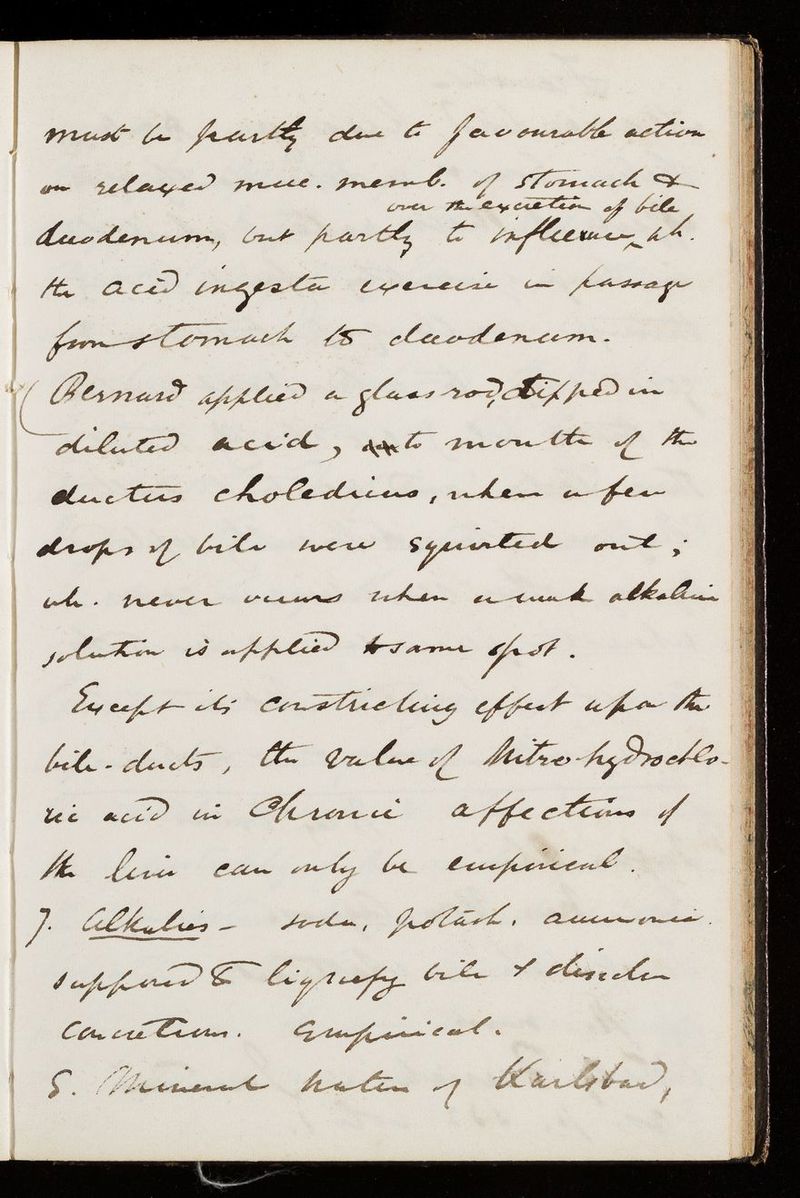 must be partly due to favourable action
on relaxed muc. memb. of stomach &
over the excretion of bile
duodenum, but partly to influence ^ wh.
the acid ingesta exercise in passage
from stomach to duodenum.
(Bernard applied a glass rod, dipped in
diluted acid, to mouth of the
ductus choledicus, when a few
drops of bile were squirted out;
wh. never occurs when a weak alkaline
solution is applied to same spot.
Except its constricting effect upon the
bile-ducts, the value of Nitro-hydrochlo-
ric acid in Chronic affections of
the liver can only be empirical.
7. Alkalies - soda, potash, ammonia.
supposed to liquefy bile & dissolve
concretions. Empirical.
8. Mineral water of Karlsbad,